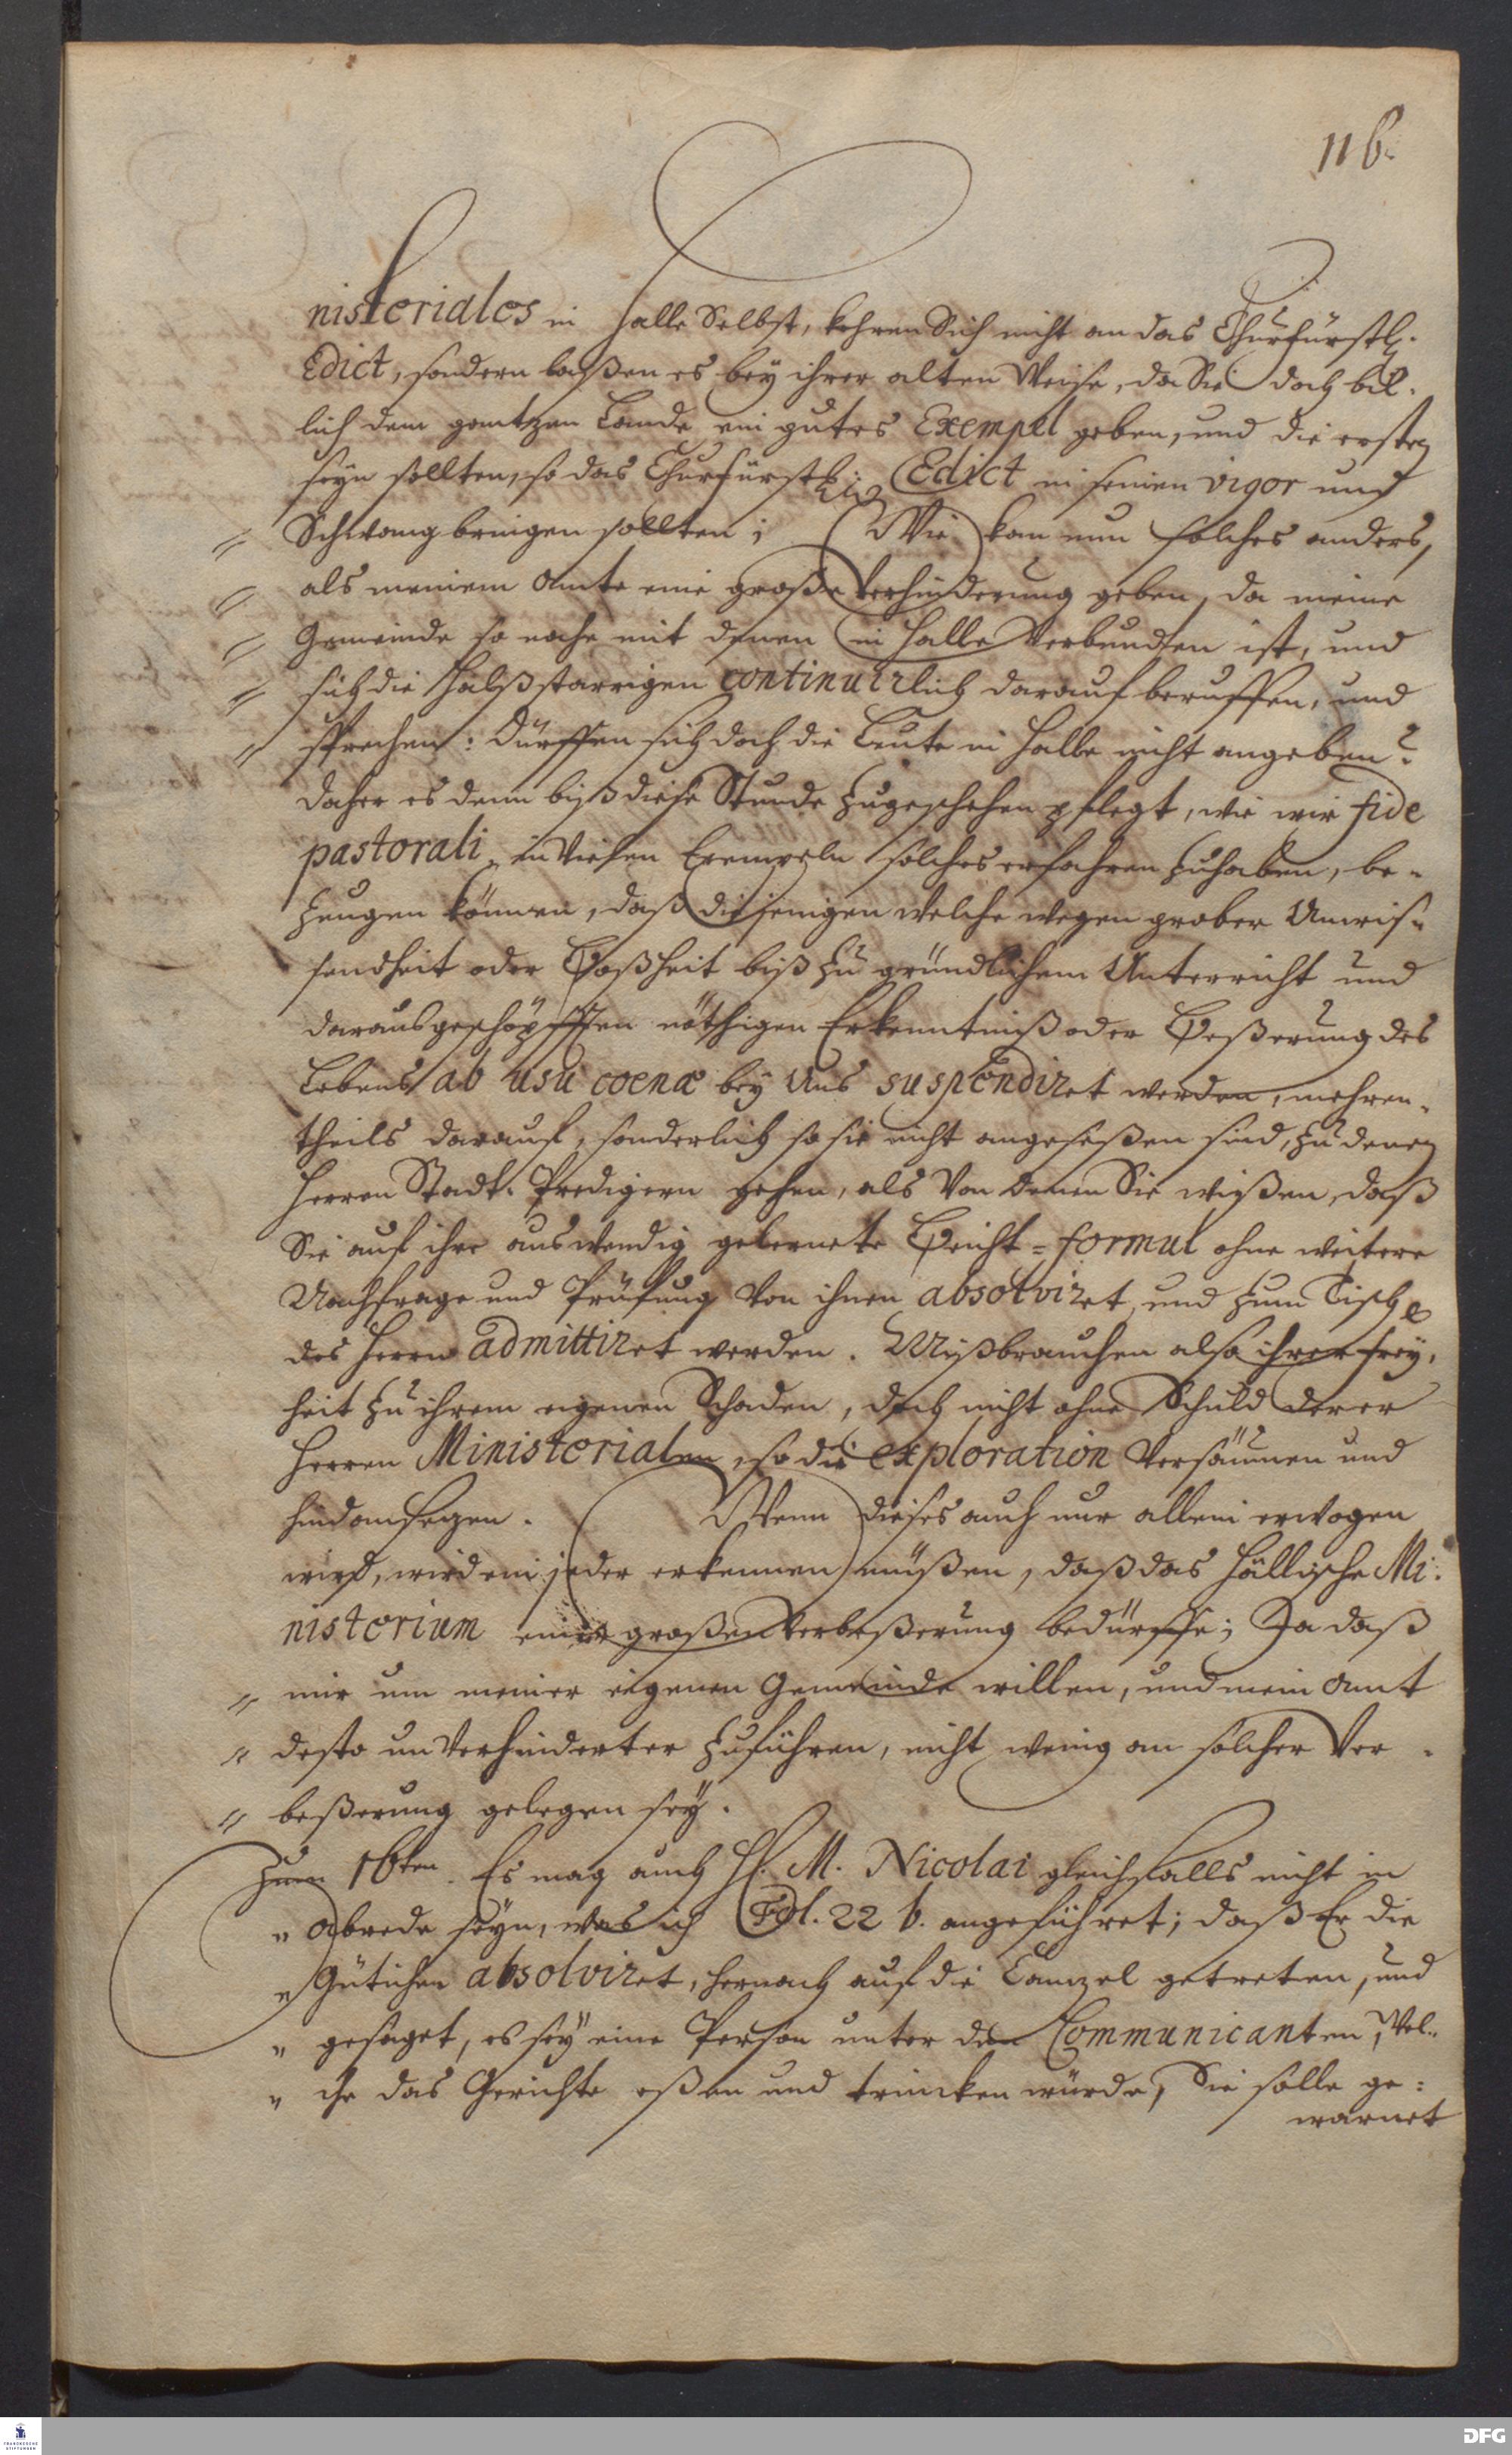 116.
nisteriales in Halle Selbst, kehren Sich nicht an das Churfürstl.
Edict, sondern laßen es bey ihrer alten Weise, da Sie doch bil-
lich dem gantzen Lande ein gutes Exempel geben, und die ersten
seyn sollten, so das Churfürstl: Edict in seinen vigor und
" Schwang bringen sollten; Wie kan nun solches anders,
" als meinem Amte eine große Verhinderung geben, da meine
" Gemeinde so nahe mit denen in Halle Verbunden ist, und
" sich die Halßstarrigen continuirlich darauf beruffen, und
" sprechen: Dürffen sich doch die Leute in Halle nicht angeben?
Daher es denn biß diese Stunde zugeschehen pflegt, wie wir fide
pastorali in Vielen Exempeln solches erfahren zuhaben, be-
zeugen können, daß diejenigen welche wegen grober Unwis-
senheit oder Boßheit biß zu gründlichem Unterricht und
daraus geschöpfften nöthigen Erkenntniß oder Beßerung des
Lebens ab usu coenæ bey Uns suspendiret werden, mehren-
theils darauf, sonderlich so sie nicht angeseßen sind, zu denen
Herren Stadt-Predigern gehen, als Von denen Sie wißen, daß
Sie auf ihre auswendig gelernete Beicht-formul ohne weitere
Nachfrage und Prüfung Von ihnen absolviret, und zum Tische
des Herrn admittiret werden. Mißbrauchen also ihrer frey-
heit zu ihrem eigenen Schaden, doch nicht ohne Schuld derer
Herren Ministerialen, so die exploration Versäumen und
hindansezen. Wenn dieses auch nur allein erwogen
wird, wird ein jeder erkennen müßen, daß das Hällische Mi-
nisterium einer großen Verbeßerung bedürffe; Ja daß
" mir um meiner eigenen Gemeinde willen, und mein Amt
" desto unVerhinderter zuführen, nicht wenig an solcher Ver-
" beßerung gelegen sey.
Zum 16ten. Es mag auch H. M. Nicolai gleichfalls nicht in
" Abrede seyn, was ich Fol. 22 b. angeführet; daß Er die
" Gütichen absolviret, hernach auf die Cantzel getreten, und
" gesaget, es sey eine Person unter den Communicanten, Wel-
" che das Gerichte eßen und trincken würde, Sie solle ge-
warnet
FRANCKESCHE STIFTUNGEN
DFG